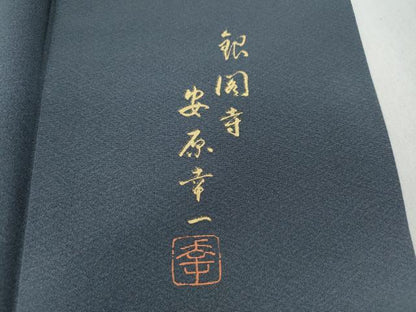 銀閣寺
安原幸一
幸